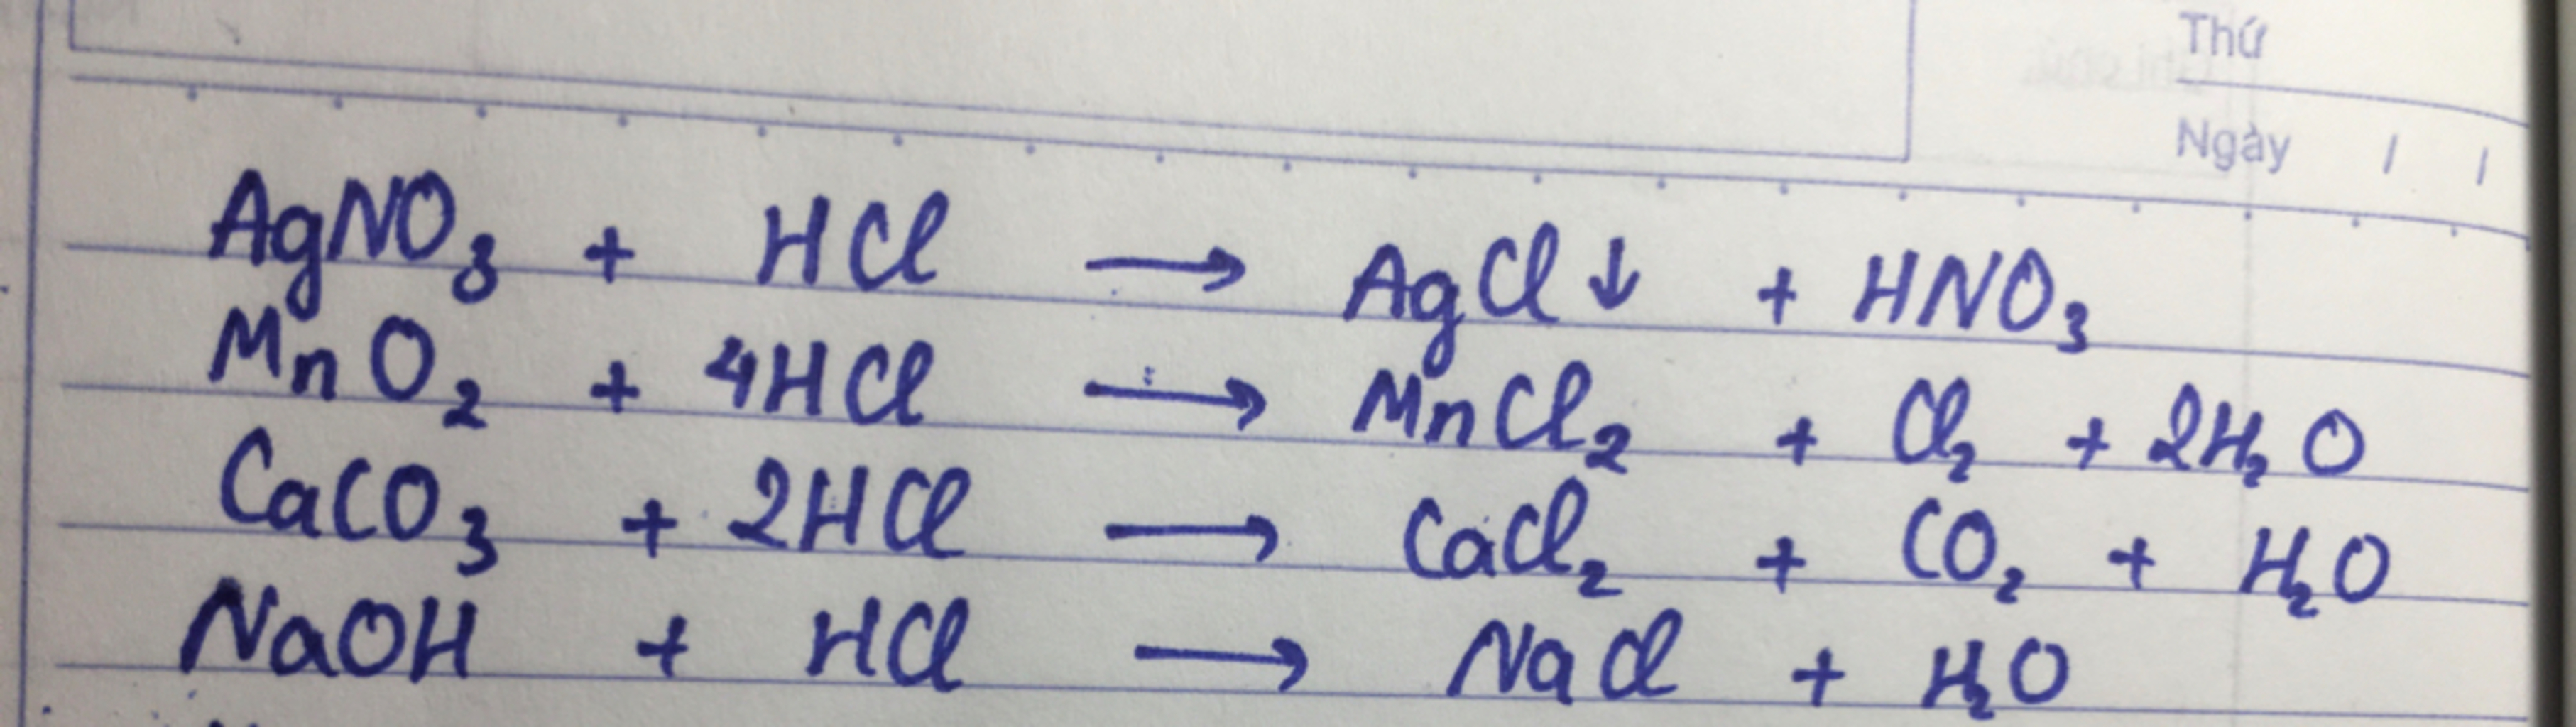 Thứ
Ngày / /
AgNO₃ + HCl → AgCl↓ + HNO₃
MnO₂ + 4HCl → MnCl₂ + Cl₂ + 2H₂O
CaCO₃ + 2HCl → CaCl₂ + CO₂ + H₂O
NaOH + HCl → NaCl + H₂O